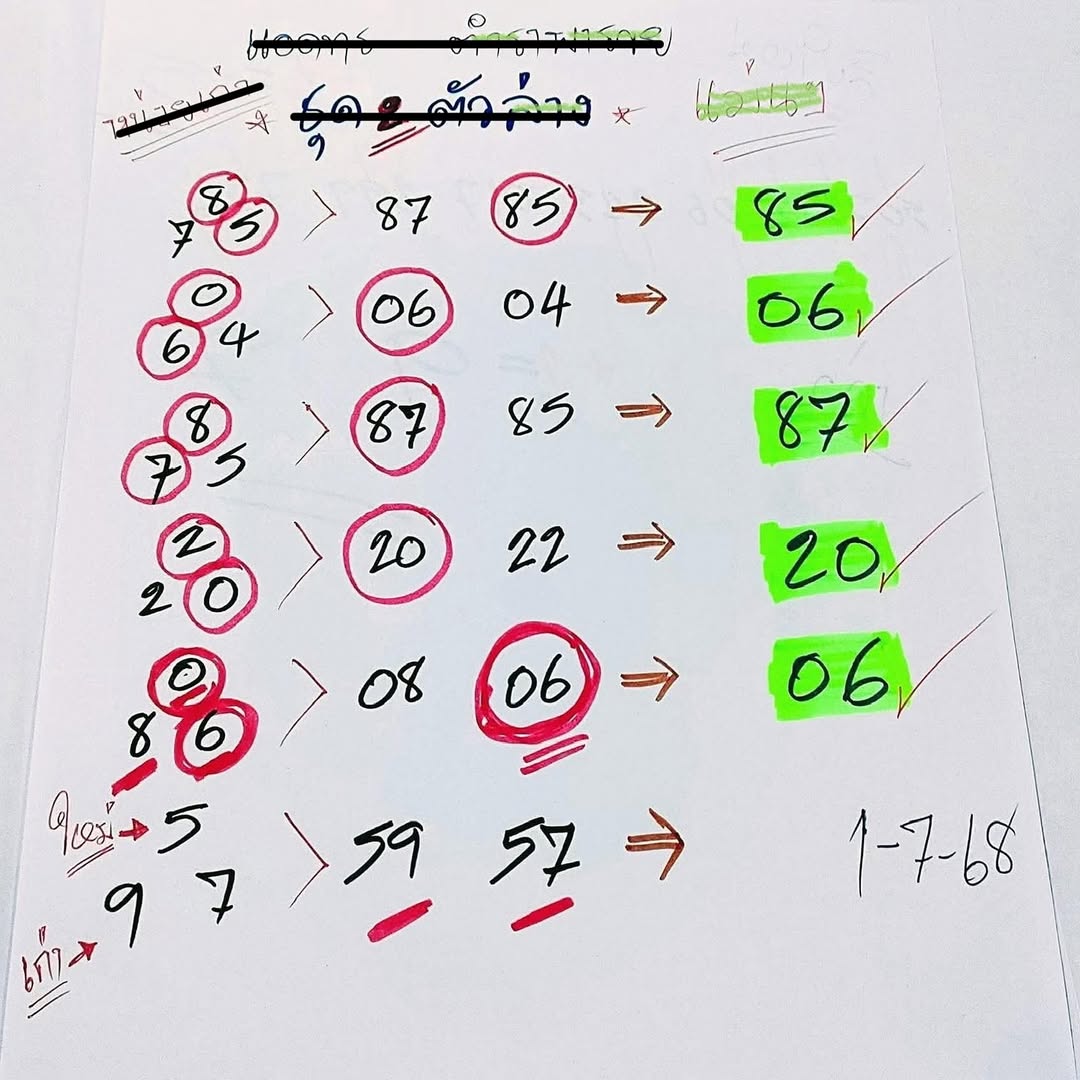 ชุด 2 ตัวล่าง
แม่นๆ
8
7 5 > 87 85 ⇒ 85 ✓
0
6 4 > 06 04 ⇒ 06 ✓
8
7 5 > 87 85 ⇒ 87 ✓
2
2 0 > 20 22 ⇒ 20 ✓
0
8 6 > 08 06 ⇒ 06 ✓
ใหม่ → 5
9 7 > 59 57 ⇒ 1-7-68
เก่า →